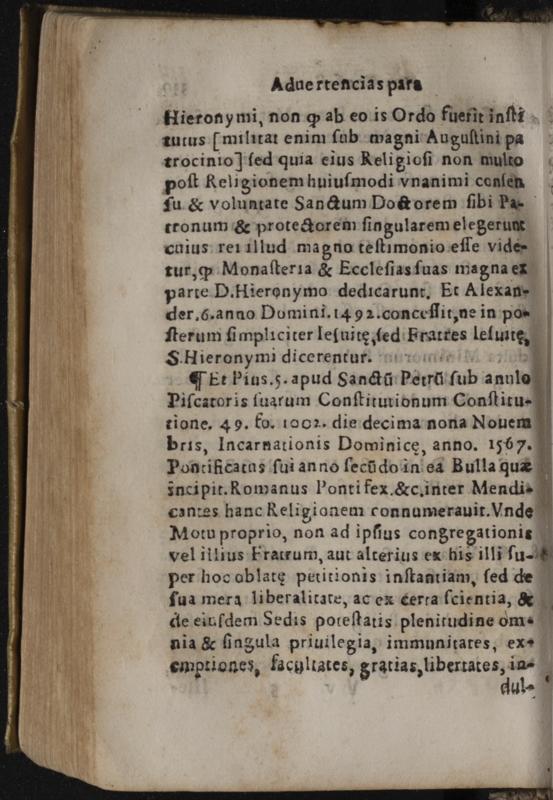 Aduertencias para
Hieronymi, non ꝙ ab eo is Ordo fuerit insti
tutus [militat enim sub magni Augustini pa
trocinio] sed quia eius Religiosi non multo
post Religionem huiusmodi vnanimi consen
su & voluntate Sanctum Doctorem sibi Pa-
tronum & protectorem singularem elegerunt
cuius rei illud magno testimonio esse vide-
tur, ꝙ Monasteria & Ecclesias suas magna ex
parte D. Hieronymo dedicarunt. Et Alexan-
der. 6. anno Domini. 1492. concessit, ne in po-
sterum simpliciter Iesuitę, sed Fratres Iesuitę,
S. Hieronymi dicerentur.
¶ Et Pius. 5. apud Sanctū Petrū sub anulo
Piscatoris suarum Constitutionum Constitu-
tione. 49. fo. 1002. die decima nona Nouem
bris, Incarnationis Dominicę, anno. 1567.
Pontificatus sui anno secūdo in ea Bulla quæ
incipit. Romanus Pontifex. &c. inter Mendi-
cantes hanc Religionem connumerauit. Vnde
Motu proprio, non ad ipsius congregationis
vel illius Fratrum, aut alterius ex his illi su-
per hoc oblatę petitionis instantiam, sed de
sua mera liberalitate, ac ex certa scientia, &
de eiusdem Sedis potestatis plenitudine om-
nia & singula priuilegia, immunitates, ex-
emptiones, facultates, gratias, libertates, in-
dul-